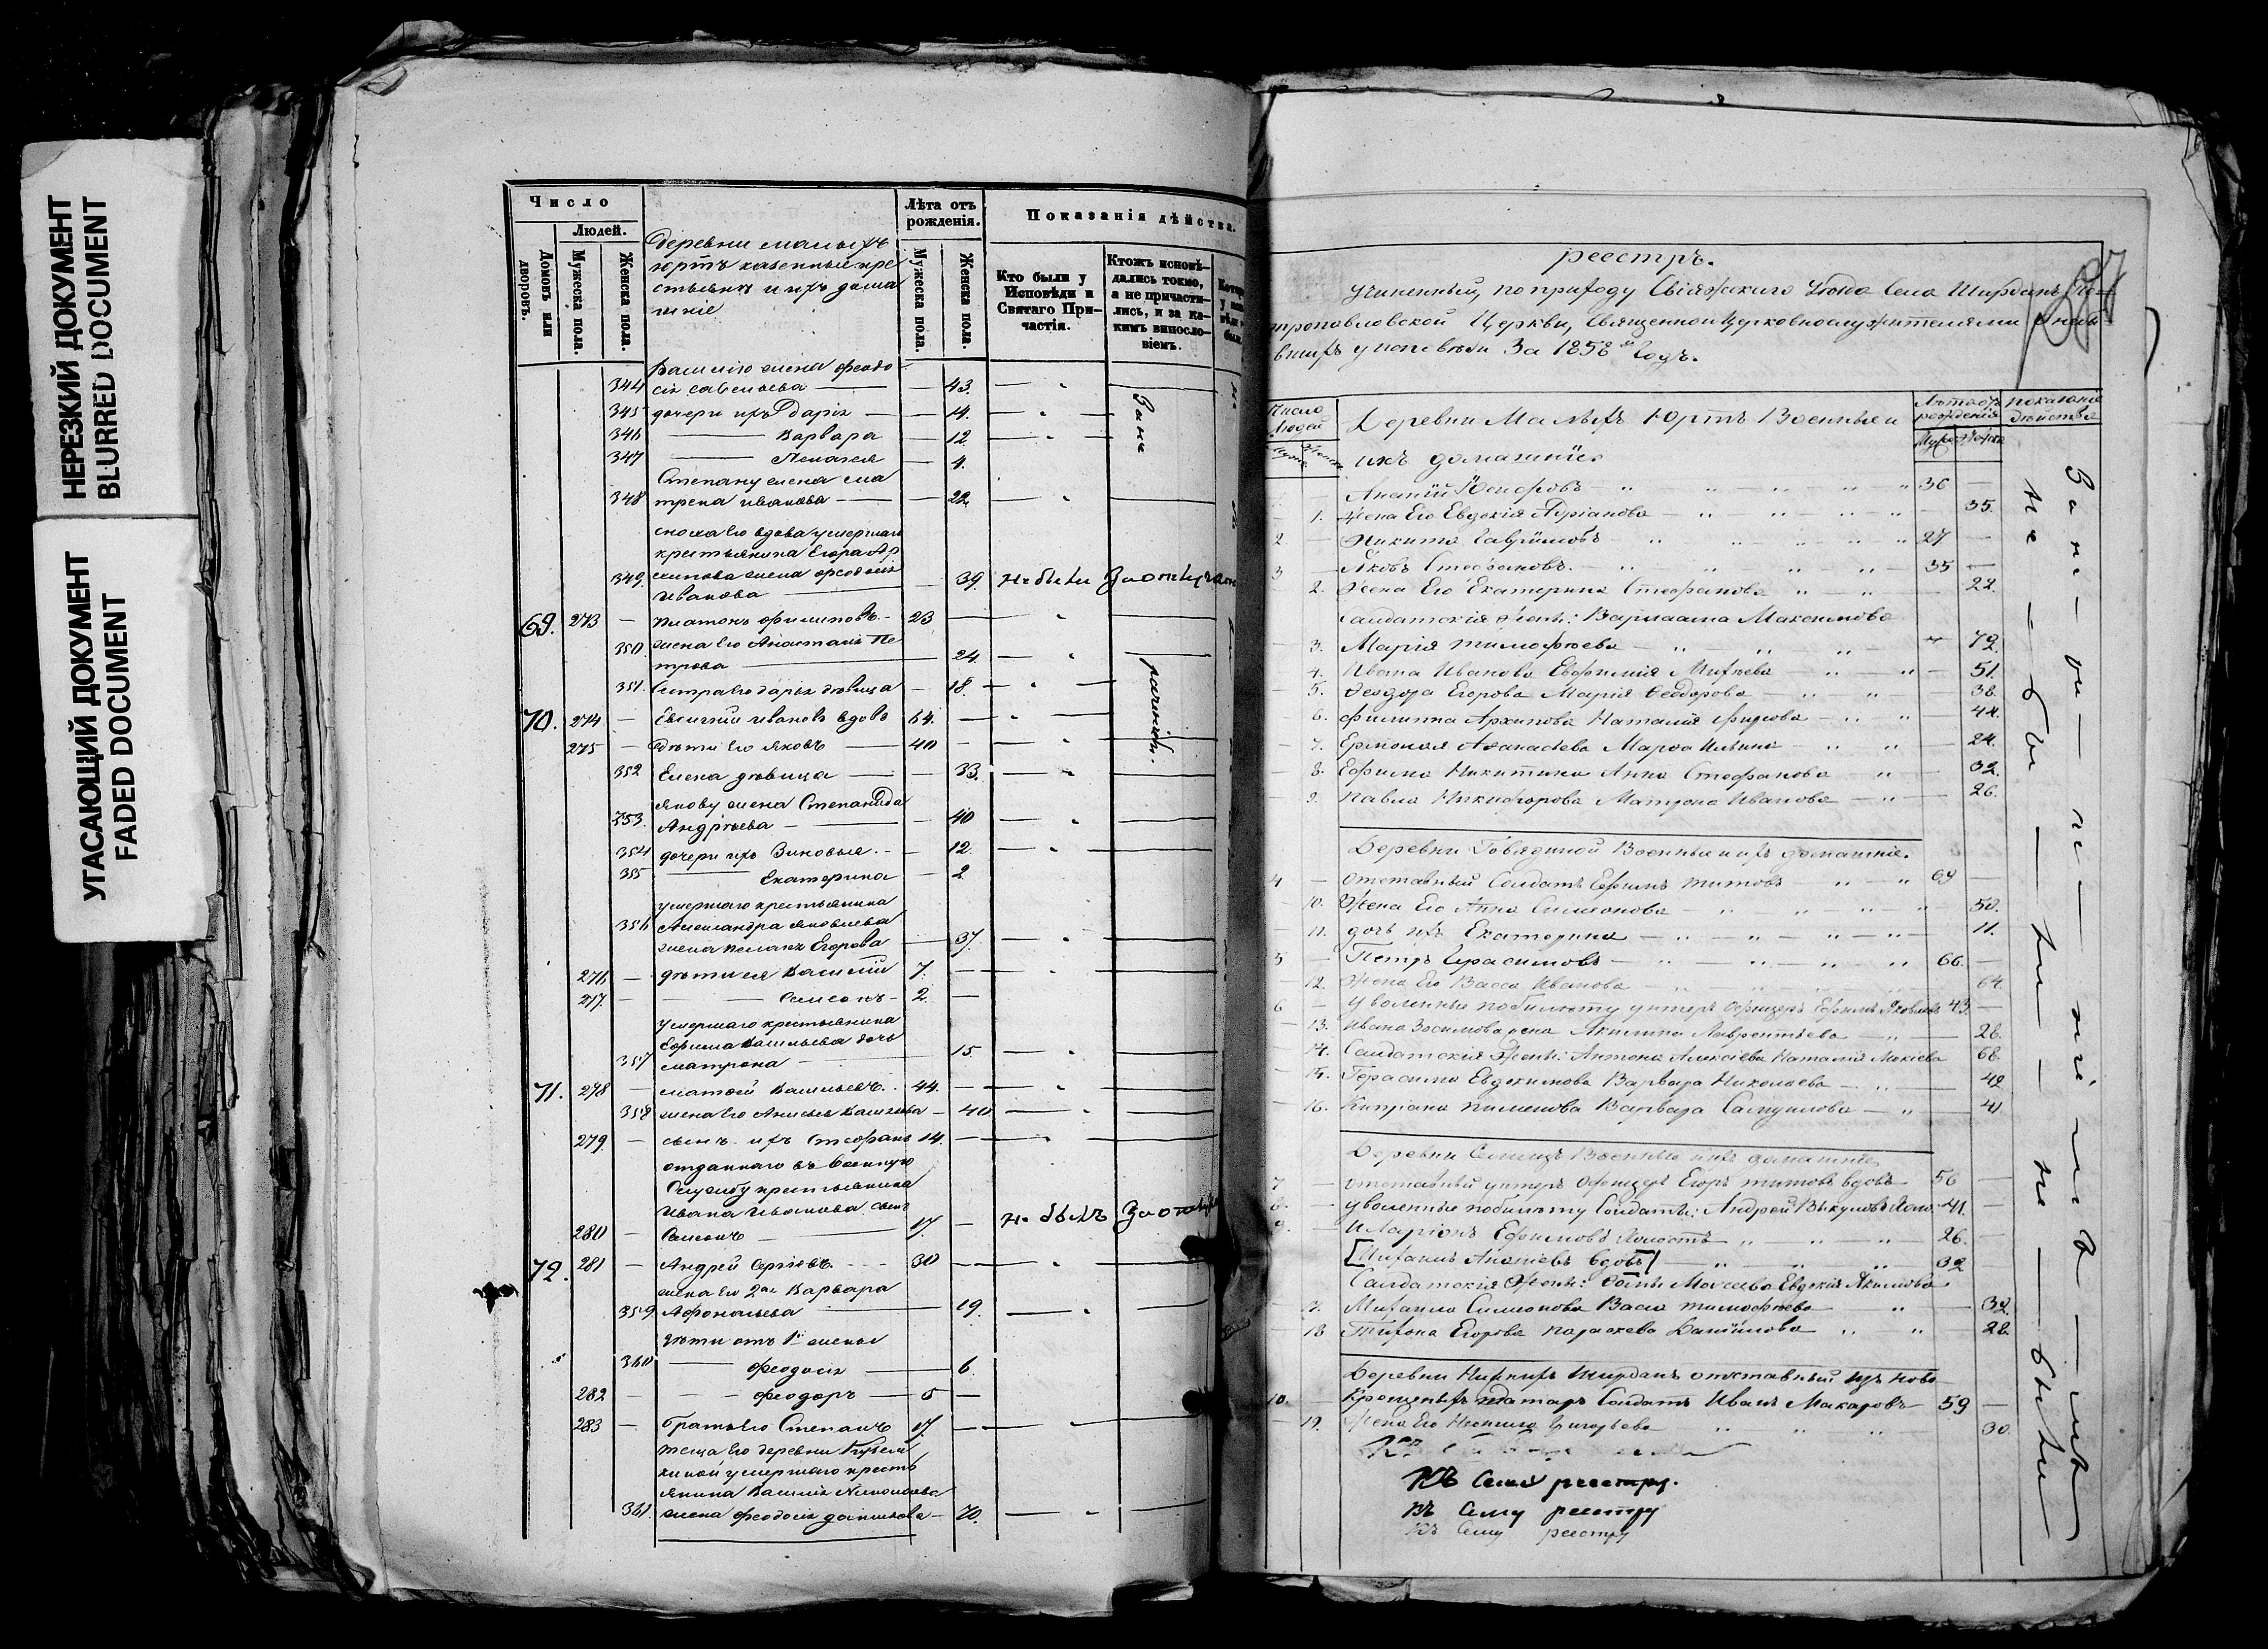 НЕРЕЗКИЙ ДОКУМЕНТ
BLURRED DOCUMENT
УГАСАЮЩИЙ ДОКУМЕНТ
FADED DOCUMENT
Число
Людей.
Домовъ или дворовъ.
Мужеска пола.
Женска пола.
Деревни малыхъ
юртъ казенные кре
стьяна и ихъ дома
шніе
Лѣта отъ рожденія.
Мужеска пола.
Женска пола.
Показанія дѣйства.
Кто были у Исповѣди и Святаго Причастія.
Ктожъ исповѣдались токмо, а не причастились, и за какимъ винословіемъ.
Василію жена Феодо
344 сія Савельева — — 43.
345 дочери ихъ Дарія — — 14.
346 — Варвара — 12.
347 — Пелагея — 4.
Степану жена Ма
348 трена Иванова — — 22
сноха его вдова умершаго
крестьянина Егора Ар
349. хипова жена Феодосія — 39. не были за отлуч
Иванова
69. 273 — Платонъ Филиповъ — 23
350. жена его Анастасія Пе
трова — 24.
351. Сестра его Дарья дѣвица — 18.
70. 274 — Евсигній Ивановъ вдовъ 64.
275 — дѣти его Яковъ — 40
352 Елена дѣвица — — 33.
Якову жена Степанида
353. Андрѣева — — 40
354 дочери ихъ Зиновья — 12.
355 — Екатерина — 2
умершаго крестьянина
356 Александра Яковлева
жена Пелагея Егорова — 37.
276 — дѣти ея Василій 7.
277 — — Самсонъ — 2.
умершаго крестьянина
Ефима Васильева дочь
357 Матрона — 15
71. 278 — Матвей Васильевъ 44.
358 жена его Анисья Василева — 40
279. — сынъ ихъ Стефанъ 14.
отданнаго въ военную
службу крестьянина
Ивана Иванова сынъ
280 — Самсонъ — 17. — не былъ за отлуч
72. 281 — Андрей Сергѣевъ 30
жена его 2ая Варвара
359. Афонасьева — 19.
дѣти отъ 1й жены
360 — Феодосія — 6.
282 — Феодоръ — 5
283 — братъ его Степанъ 17.
теща его деревни
умершаго кресть
янина Василія
361. жена Феодосія — 70.
реестръ.
учиненный, по приходу Свіяжскаго уѣзда села Ширданъ Пе-
тропавловской Церкви, Священноцерковнослужителями о небы
вшихъ у исповѣди за 1858й годъ.
Число Людей
Деревни Малыхъ Юртъ Военные и
ихъ домашніе
Лѣта отъ рожденія
показаніе дѣйства
Ананій — 36
1. Жена Его Евдокія Адріанова — 35.
2. Никита Гавриловъ 27
3 Яковъ Стефановъ. 35
2. Жена Его Екатерина Стефанова 22.
Солдатскія жены: Варлаама Максимова
3. Марія Тимофѣева — 72.
4. Ивана Иванова Евфимія Михѣева 51.
5. Ѳеодора Егорова Марія Ѳеодорова — 38.
6. Филиппа Архипова Наталія — 44.
7. Ермолая Афанасьева Марѳа Ильина 24.
8. Ефима Никитина Анна Стефанова 32.
9. Павла Никифорова Матрона Иванова — 26.
Деревни Говядиной Военные и ихъ домашніе.
4 — отставный Солдатъ Ефимъ Титовъ — 69
10. Жена Его Анна Симеонова — 50.
11. дочь ихъ Екатерина — 11.
5 Петръ Герасимовъ — 66.
12. Жена Его Васса Иванова — 64.
6 — уволенные по билету унтеръ Офицеръ Ефимъ Яковлевъ 43
13. Ивана Зосимова жена Акилина Лаврентьева — 26.
14. Солдатскія Жены: Антона Алексѣева Наталія 68.
15. Герасима Евдокимова Варвара Николаева — 42
16. Кипріана Пименова Варвара Самуилова — 41
Деревни Военные и ихъ домашніе
7 — отставный унтеръ Офицеръ Егоръ Титовъ вдовъ 56
8. уволенные по билету Солдаты: Андрей Викуловъ Холо: 41.
9. Иларіонъ Ефимовъ Холостъ 26.
[Михаилъ Ананіевъ вдовъ] 32
Солдатскія Жены: Моисеева Евдокія Акимова
17. Михаила Симеонова Васса Тимофѣева — 32.
18 Тихона Егорова Параскева Даніилова 28.
Деревни Нижнихъ Ширданъ отставный изъ ново
10. крещеныхъ татаръ Солдатъ Иванъ Макаровъ — 59
19. Жена Его Григорьева 30
Къ Сему реестру.
Къ Сему реестру
Къ Сему реестру